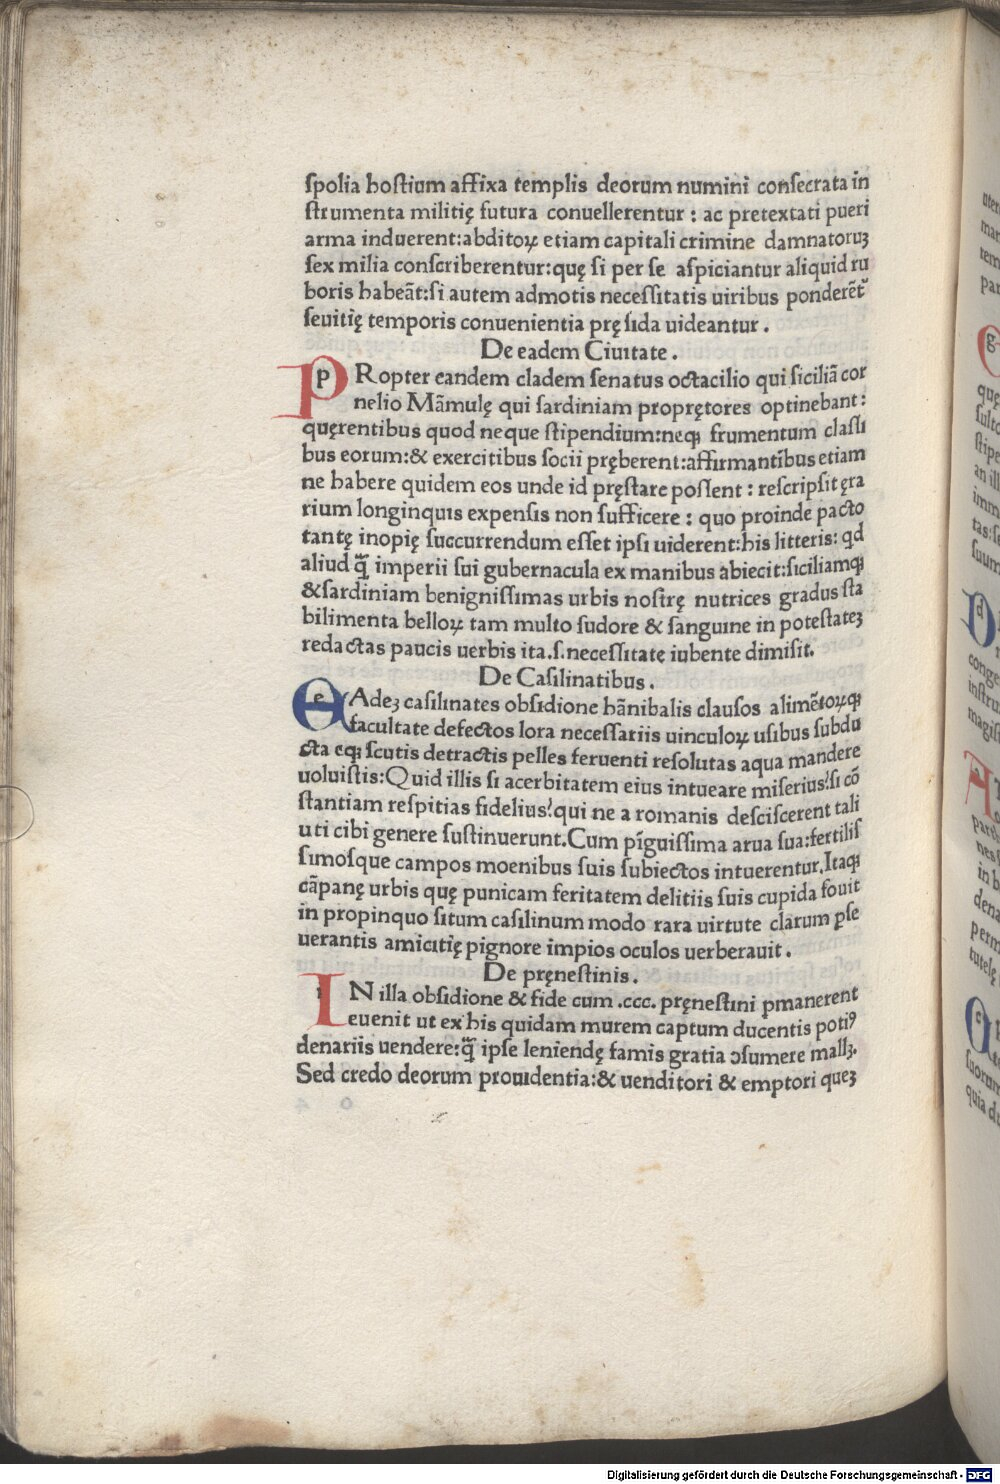 ſpolia hoſtium affixa templis deorum numini conſecrata in
ſtrumenta militię futura conuellerentur : ac pretextati pueri
arma induerent:abditoꝝ etiam capitali crimine damnatoruꝫ
ſex milia conſcriberentur:quę ſi per ſe aſpiciantur aliquid ru
boris habeāt:ſi autem admotis neceſſitatis uiribus ponderēt᷑
ſeuitię temporis conuenientia pręſida uideantur .
De eadem Ciuitate .
PRopter eandem cladem ſenatus octacilio qui ſiciliā cor
nelio Māmulę qui ſardiniam proprętores optinebant :
quęrentibus quod neque ſtipendium:neqꝫ frumentum claſſi
bus eorum:& exercitibus ſocii pręberent:affirmantibus etiam
ne habere quidem eos unde id pręſtare poſſent : reſcripſit ęra
rium longinquis expenſis non ſufficere : quo proinde pacto
tantę inopię ſuccurrendum eſſet ipſi uiderent:his litteris: qd
aliud q̄ imperii ſui gubernacula ex manibus abiecit:ſiciliamqꝫ
&ſardiniam benigniſſimas urbis noſtrę nutrices gradus ſta
bilimenta belloꝝ tam multo ſudore & ſanguine in poteſtateꝫ
redactas paucis uerbis ita.ſ.neceſſitate iubente dimiſit.
De Caſilinatibus .
eAdeꝫ caſilinates obſidione hānibalis clauſos alimētoꝝqꝫ
facultate defectos lora neceſſariis uinculoꝝ uſibus ſubdu
cta eqꝫ ſcutis detractis pelles feruenti reſolutas aqua mandere
uoluiſtis:Quid illis ſi acerbitatem eius intueare miſerius?ſi cō
ſtantiam reſpitias fidelius?qui ne a romanis deſciſcerent tali
uti cibi genere ſuſtinuerunt.Cum pīguiſſima arua ſua:fertiliſ
ſimoſque campos moenibus ſuis ſubiectos intuerentur.Itaqꝫ
cāpanę urbis quę punicam feritatem delitiis ſuis cupida fouit
in propinquo ſitum caſilinum modo rara uirtute clarum ꝑſe
uerantis amicitię pignore impios oculos uerberauit .
De pręneſtinis .
IN illa obſidione & fide cum .ccc. pręneſtini ꝑmanerent
euenit ut ex his quidam murem captum ducentis potiꝰ
denariis uendere:q̄ ipſe leniendę famis gratia ↄſumere mallꝫ.
Sed credo deorum prouidentia:& uenditori & emptori queꝫ
Digitalisierung gefördert durch die Deutsche Forschungsgemeinschaft - DFG